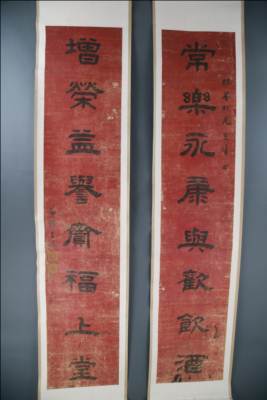 常樂永康與歡飲酒
增榮益譽齎福上堂